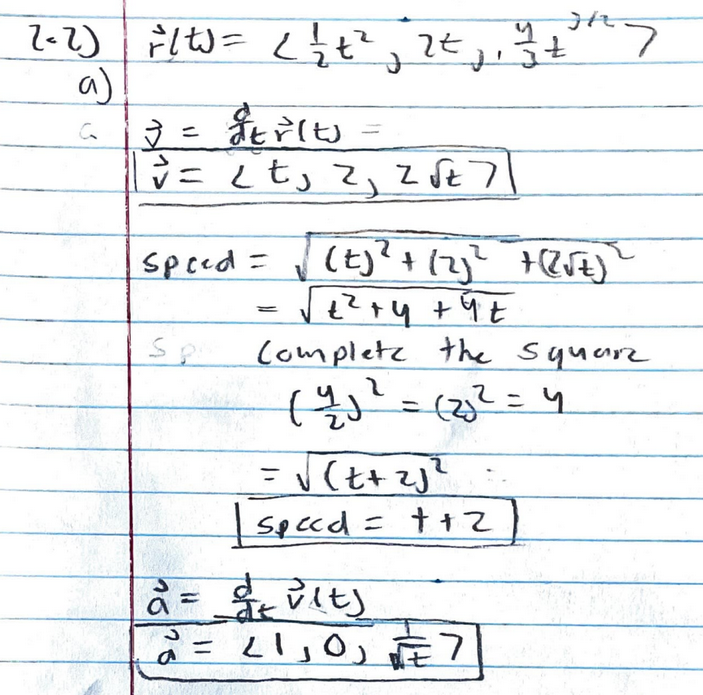 2.2) r⃗(t) = < ½t², 2t, 4/3 t^3/2 >
a)
v⃗ = d/dt r⃗(t) =
v⃗ = < t, 2, 2√t >
speed = √((t)² + (2)² + (2√t)²)
= √(t² + 4 + 4t)
Complete the square
(4/2)² = (2)² = 4
= √((t + 2)²)
speed = t + 2
a⃗ = d/dt v⃗(t)
a⃗ = < 1, 0, 1/√t >